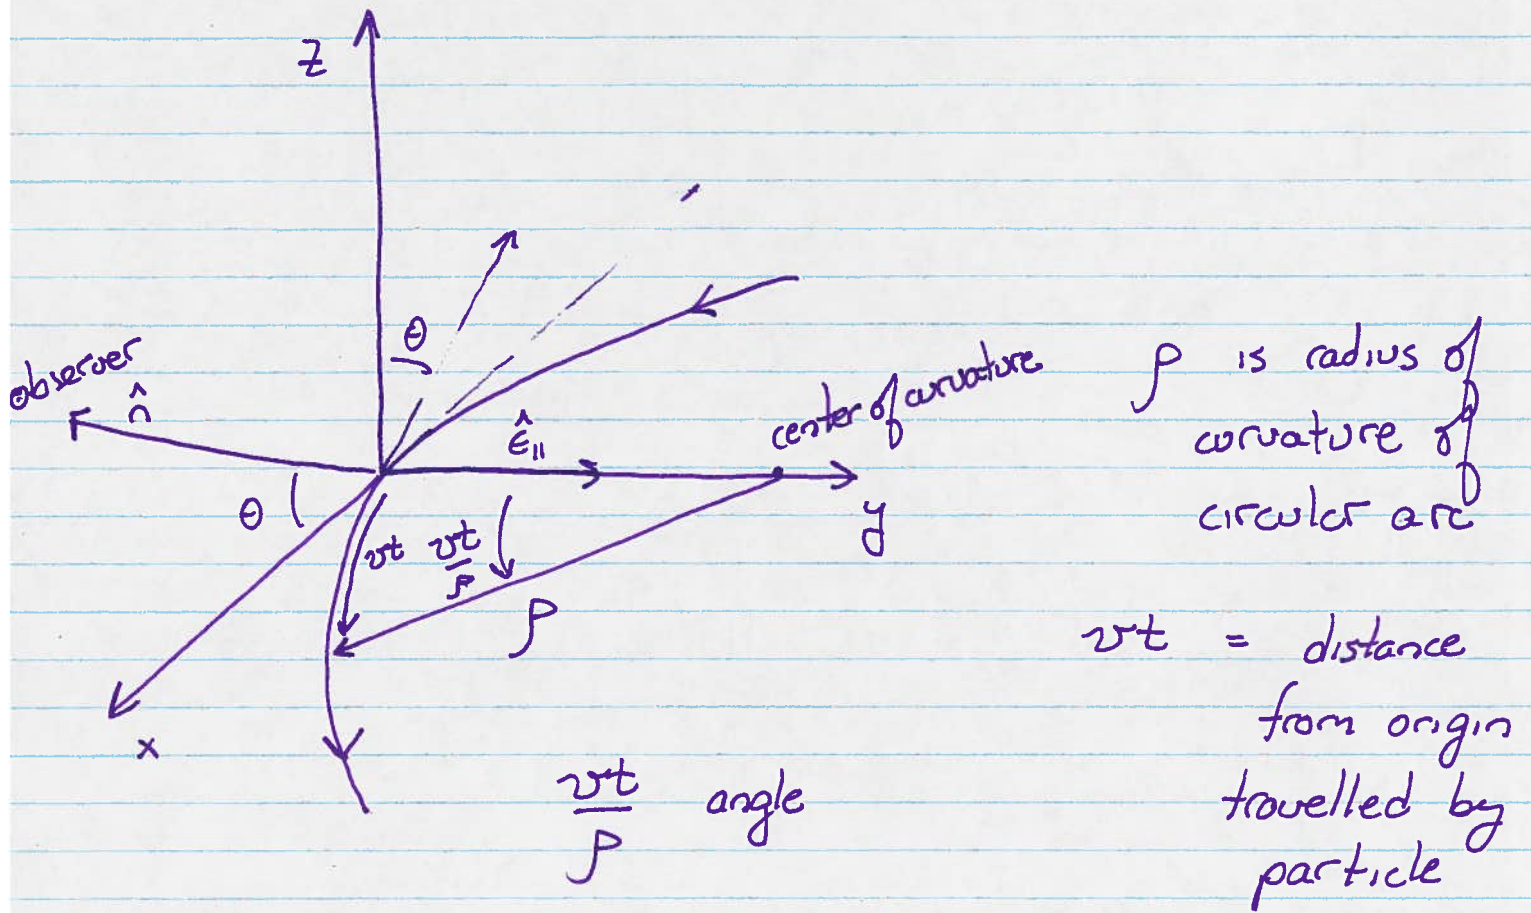 z
θ
observer
n̂
ε̂∥
center of curvature
y
θ
vt
vt/ρ
ρ
x
vt/ρ angle
ρ is radius of
curvature of
circular arc
vt = distance
from origin
travelled by
particle